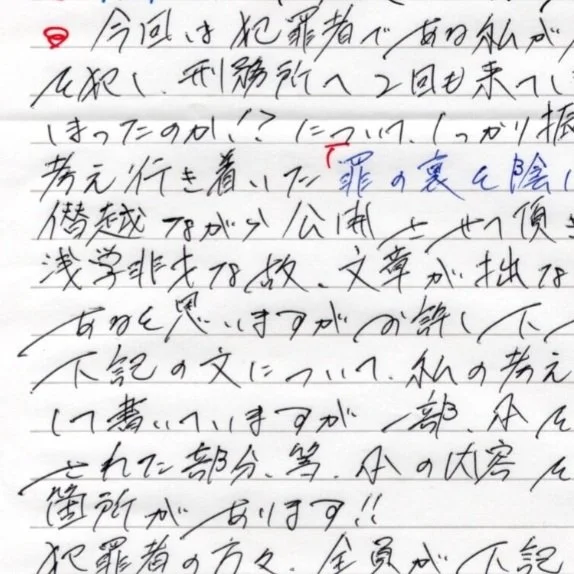 今回は犯罪者である私が
を犯し、刑務所へ2回も来てし
まったのか!?について、しっかり振
考え行き着いた「罪の裏を陰
僭越ながら公開させて頂き
浅学非才な故、文章が拙な
あると思いますがお許し下
下記の文について、私の考え
して書いていますが一部、本を
された部分、等、本の内容を
箇所があります!!
犯罪者の方々、全員が下記